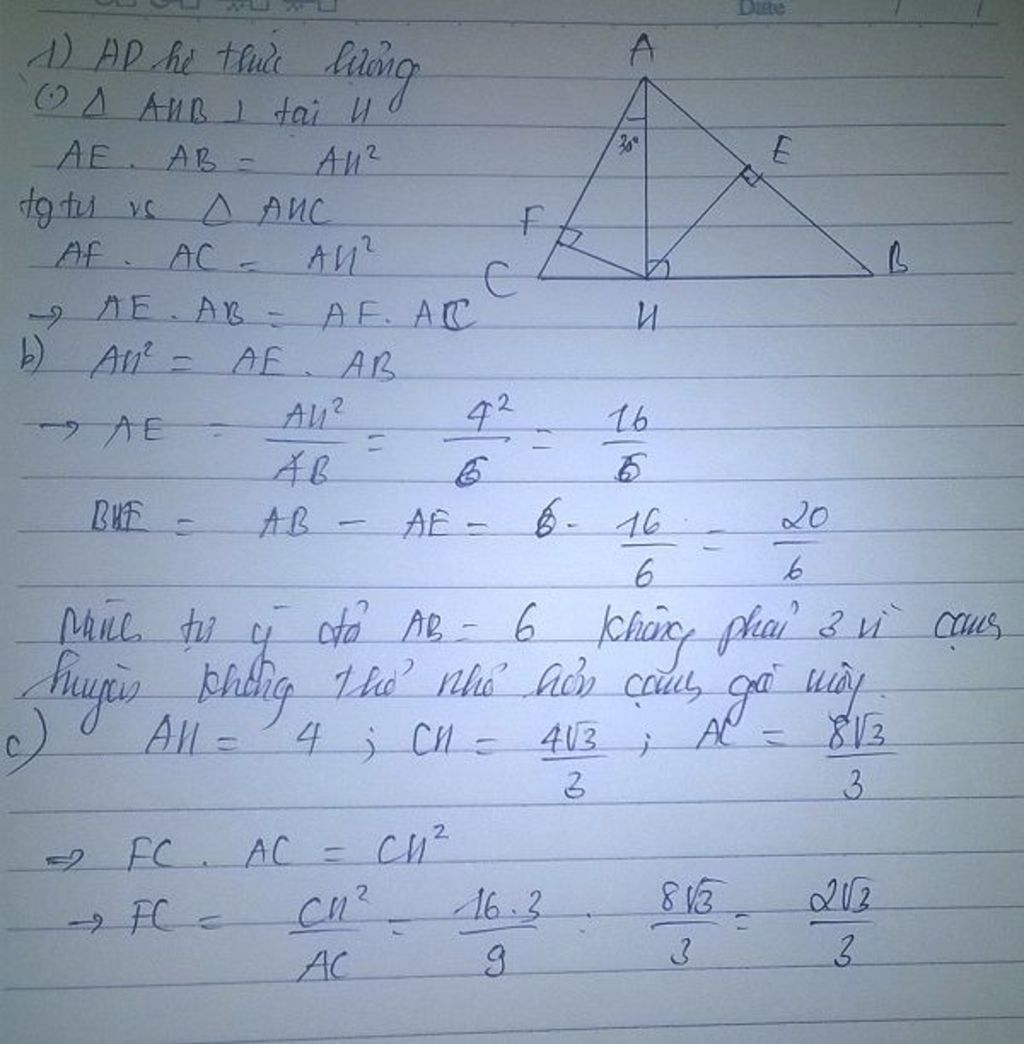 Date
1) AD hệ thức lượng
(·) Δ AHB ⊥ tại H
AE . AB = AH²
tg tự vs Δ AHC
AF . AC = AH²
→ AE . AB = AF . AC
b) AH² = AE . AB
→ AE = AH²/AB = 4²/6 = 16/6
BE = AB - AE = 6 - 16/6 = 20/6
Mình tự ý đổi AB = 6 không phải 3 vì cạnh
huyền không thể nhỏ hơn cạnh góc vuông.
c) AH = 4 ; CH = 4√3/3 ; AC = 8√3/3
⇒ FC . AC = CH²
→ FC = CH²/AC = 16.3/9 : 8√3/3 = 2√3/3
A
30°
E
F
C
B
H